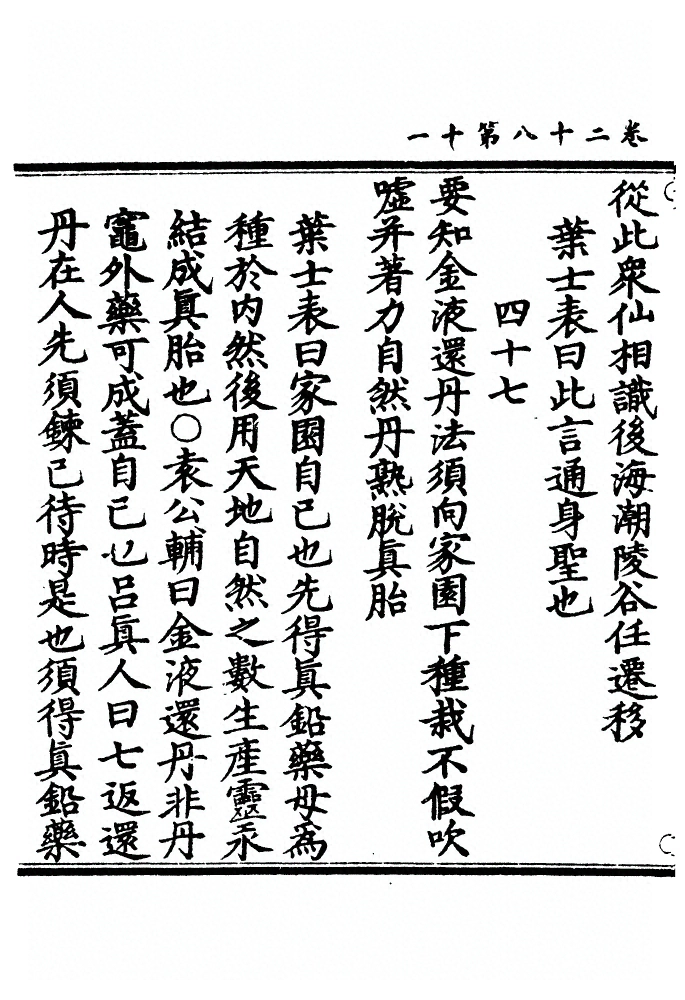 卷二十八第十一
從此衆仙相識後海潮陵谷任遷移
葉士表曰此言通身聖也
四十七
要知金液還丹法須向家園下種栽不假吹
噓并著力自然丹熟脫眞胎
葉士表曰家園自己也先得眞鉛藥母爲
種於内然後用天地自然之數生産靈汞
結成眞胎也○袁公輔曰金液還丹非丹
竈外藥可成蓋自己也吕眞人曰七返還
丹在人先須鍊己待時是也須得眞鉛藥